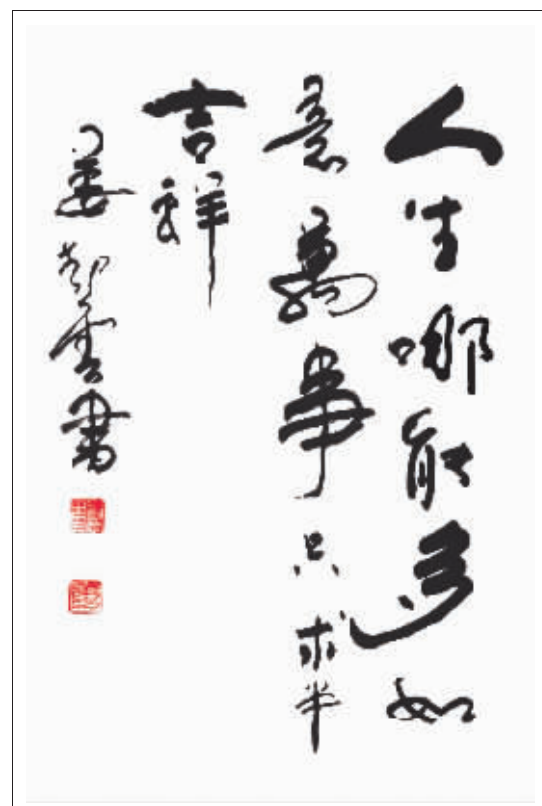 人生哪能多如
意萬事只求半
吉祥
姜雲書